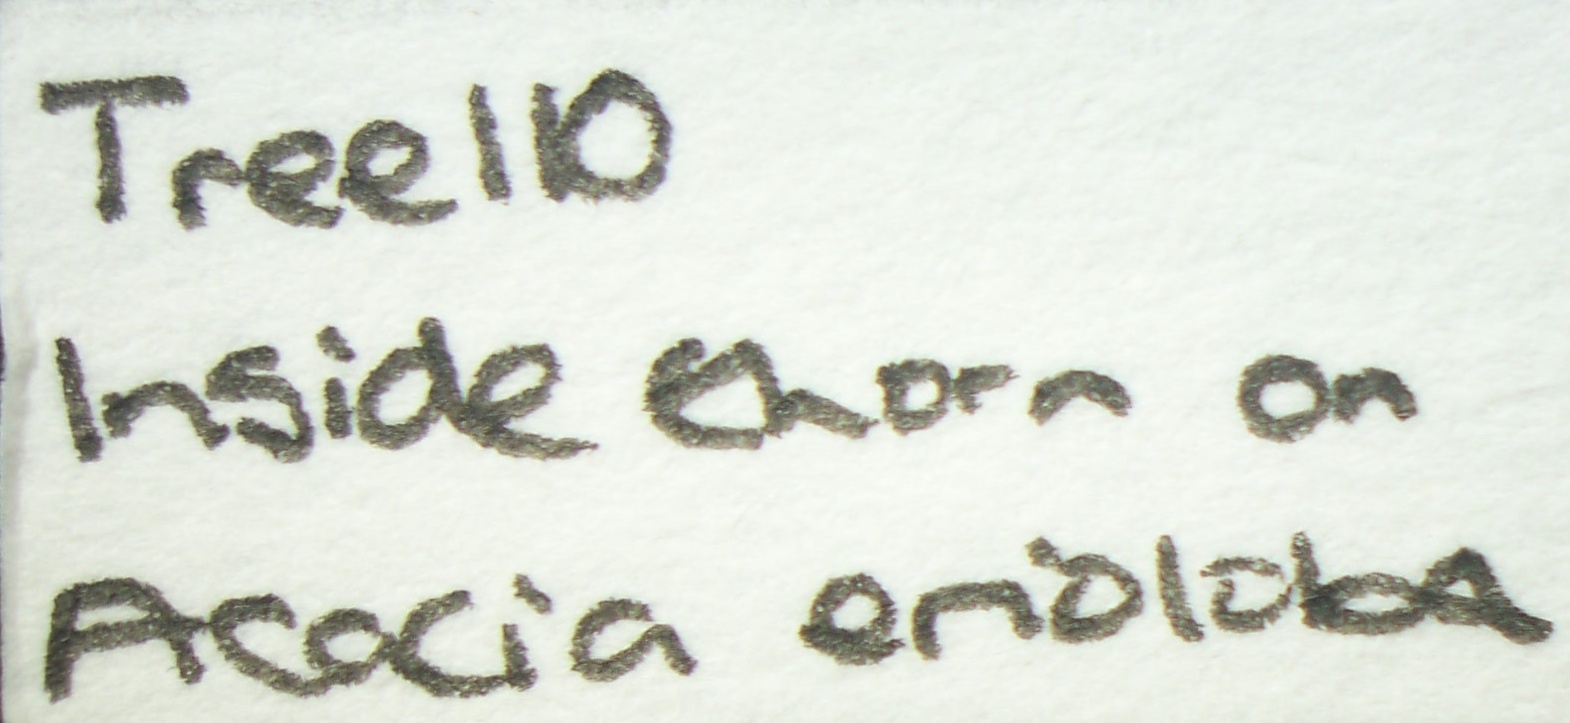 Tree 110
Inside thorn on
Acacia erioloba